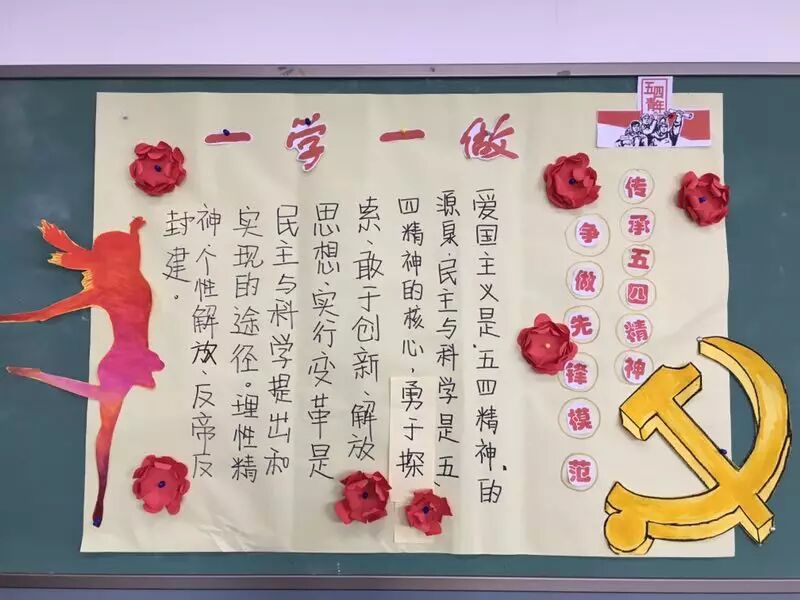 一学一做
五四
青年
传承五四精神
争做先锋模范
爱国主义是五四精神的
源泉、民主与科学是五
四精神的核心，勇于探
索、敢于创新、解放
思想、实行变革是
民主与科学提出和
实现的途径。理性精
神、个性解放、反帝反
封建。